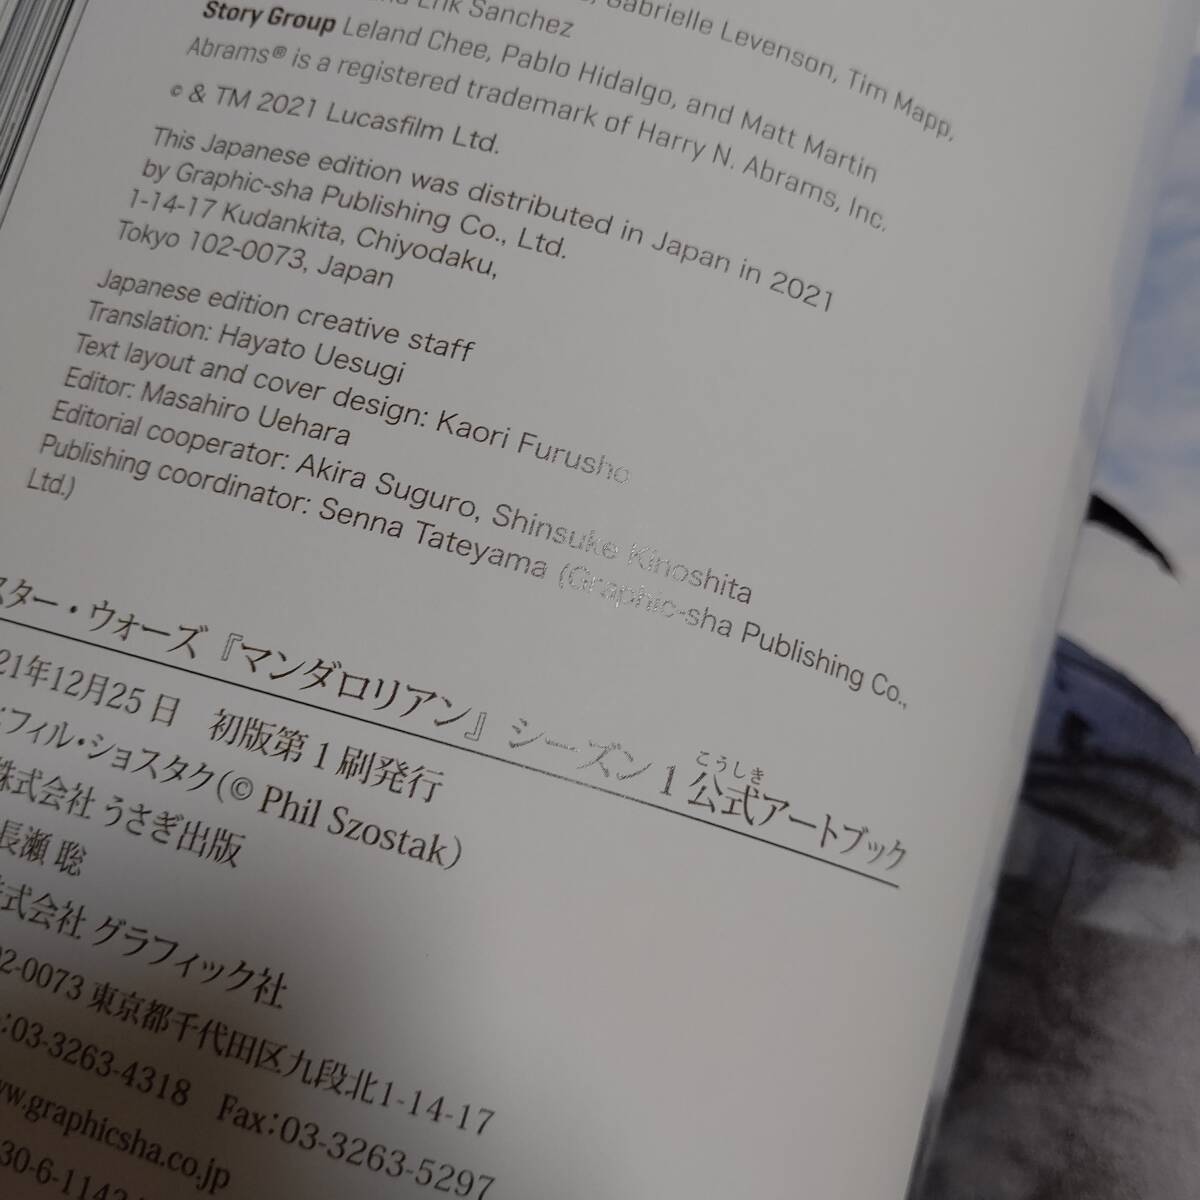 Gabrielle Levenson, Tim Mapp,
Erik Sanchez
Story Group Leland Chee, Pablo Hidalgo, and Matt Martin
Abrams® is a registered trademark of Harry N. Abrams, Inc.
© & TM 2021 Lucasfilm Ltd.
This Japanese edition was distributed in Japan in 2021
by Graphic-sha Publishing Co., Ltd.
1-14-17 Kudankita, Chiyodaku,
Tokyo 102-0073, Japan
Japanese edition creative staff
Translation: Hayato Uesugi
Text layout and cover design: Kaori Furusho
Editor: Masahiro Uehara
Editorial cooperator: Akira Suguro, Shinsuke Kinoshita
Publishing coordinator: Senna Tateyama (Graphic-sha Publishing Co.,
Ltd.)
スター・ウォーズ『マンダロリアン』シーズン1公式アートブック
こうしき
21年12月25日 初版第1刷発行
:フィル・ショスタク(© Phil Szostak)
株式会社 うさぎ出版
長瀬 聡
株式会社 グラフィック社
02-0073 東京都千代田区九段北1-14-17
:03-3263-4318 Fax:03-3263-5297
www.graphicsha.co.jp
30-6-1142